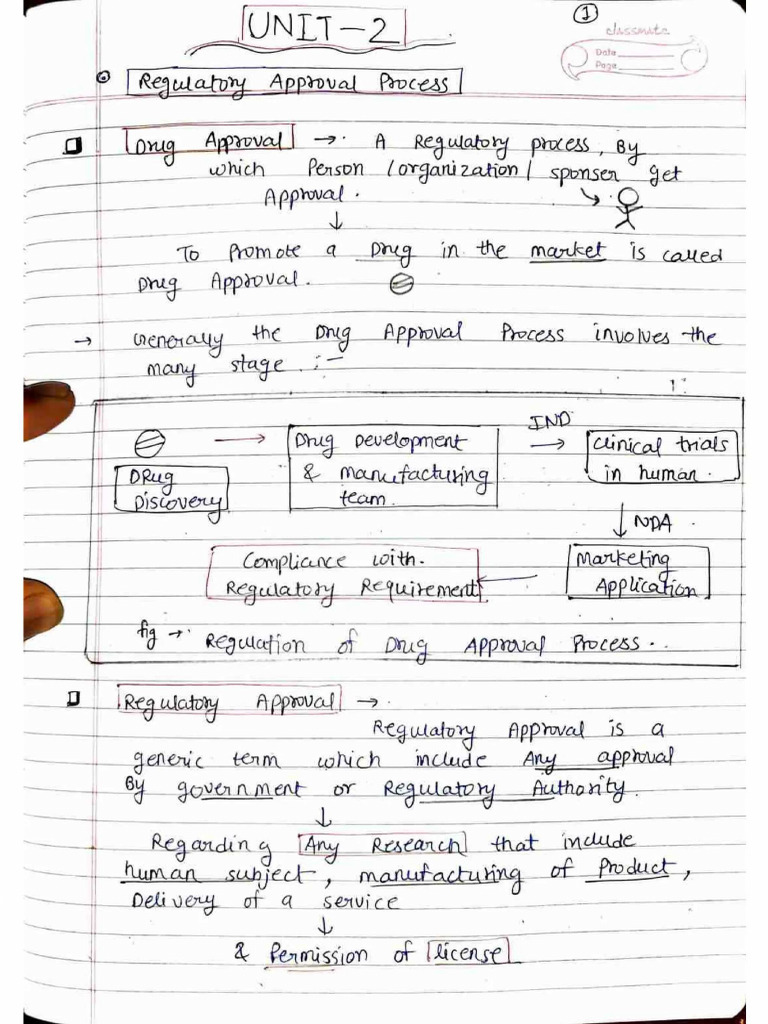 UNIT-2
1
classmate
Date
Page
Regulatory Approval Process
Drug Approval → A Regulatory process, By
which Person /organization/ sponser get
Approval.
↓
To Promote a Drug in the market is called
Drug Approval.
→ Generally the Drug Approval Process involves the
many stage :-
→ Drug Development IND → clinical trials
& manufacturing in human.
team.
DRug
Discovery
↓ NDA
Compliance with ← Marketing
Regulatory Requirement Application
fig → Regulation of Drug Approval Process..
Regulatory Approval →
Regulatory Approval is a
generic term which include Any approval
By government or Regulatory Authority.
↓
Regarding Any Research that include
human subject, manufacturing of Product,
Delivery of a service
↓
& Permission of license